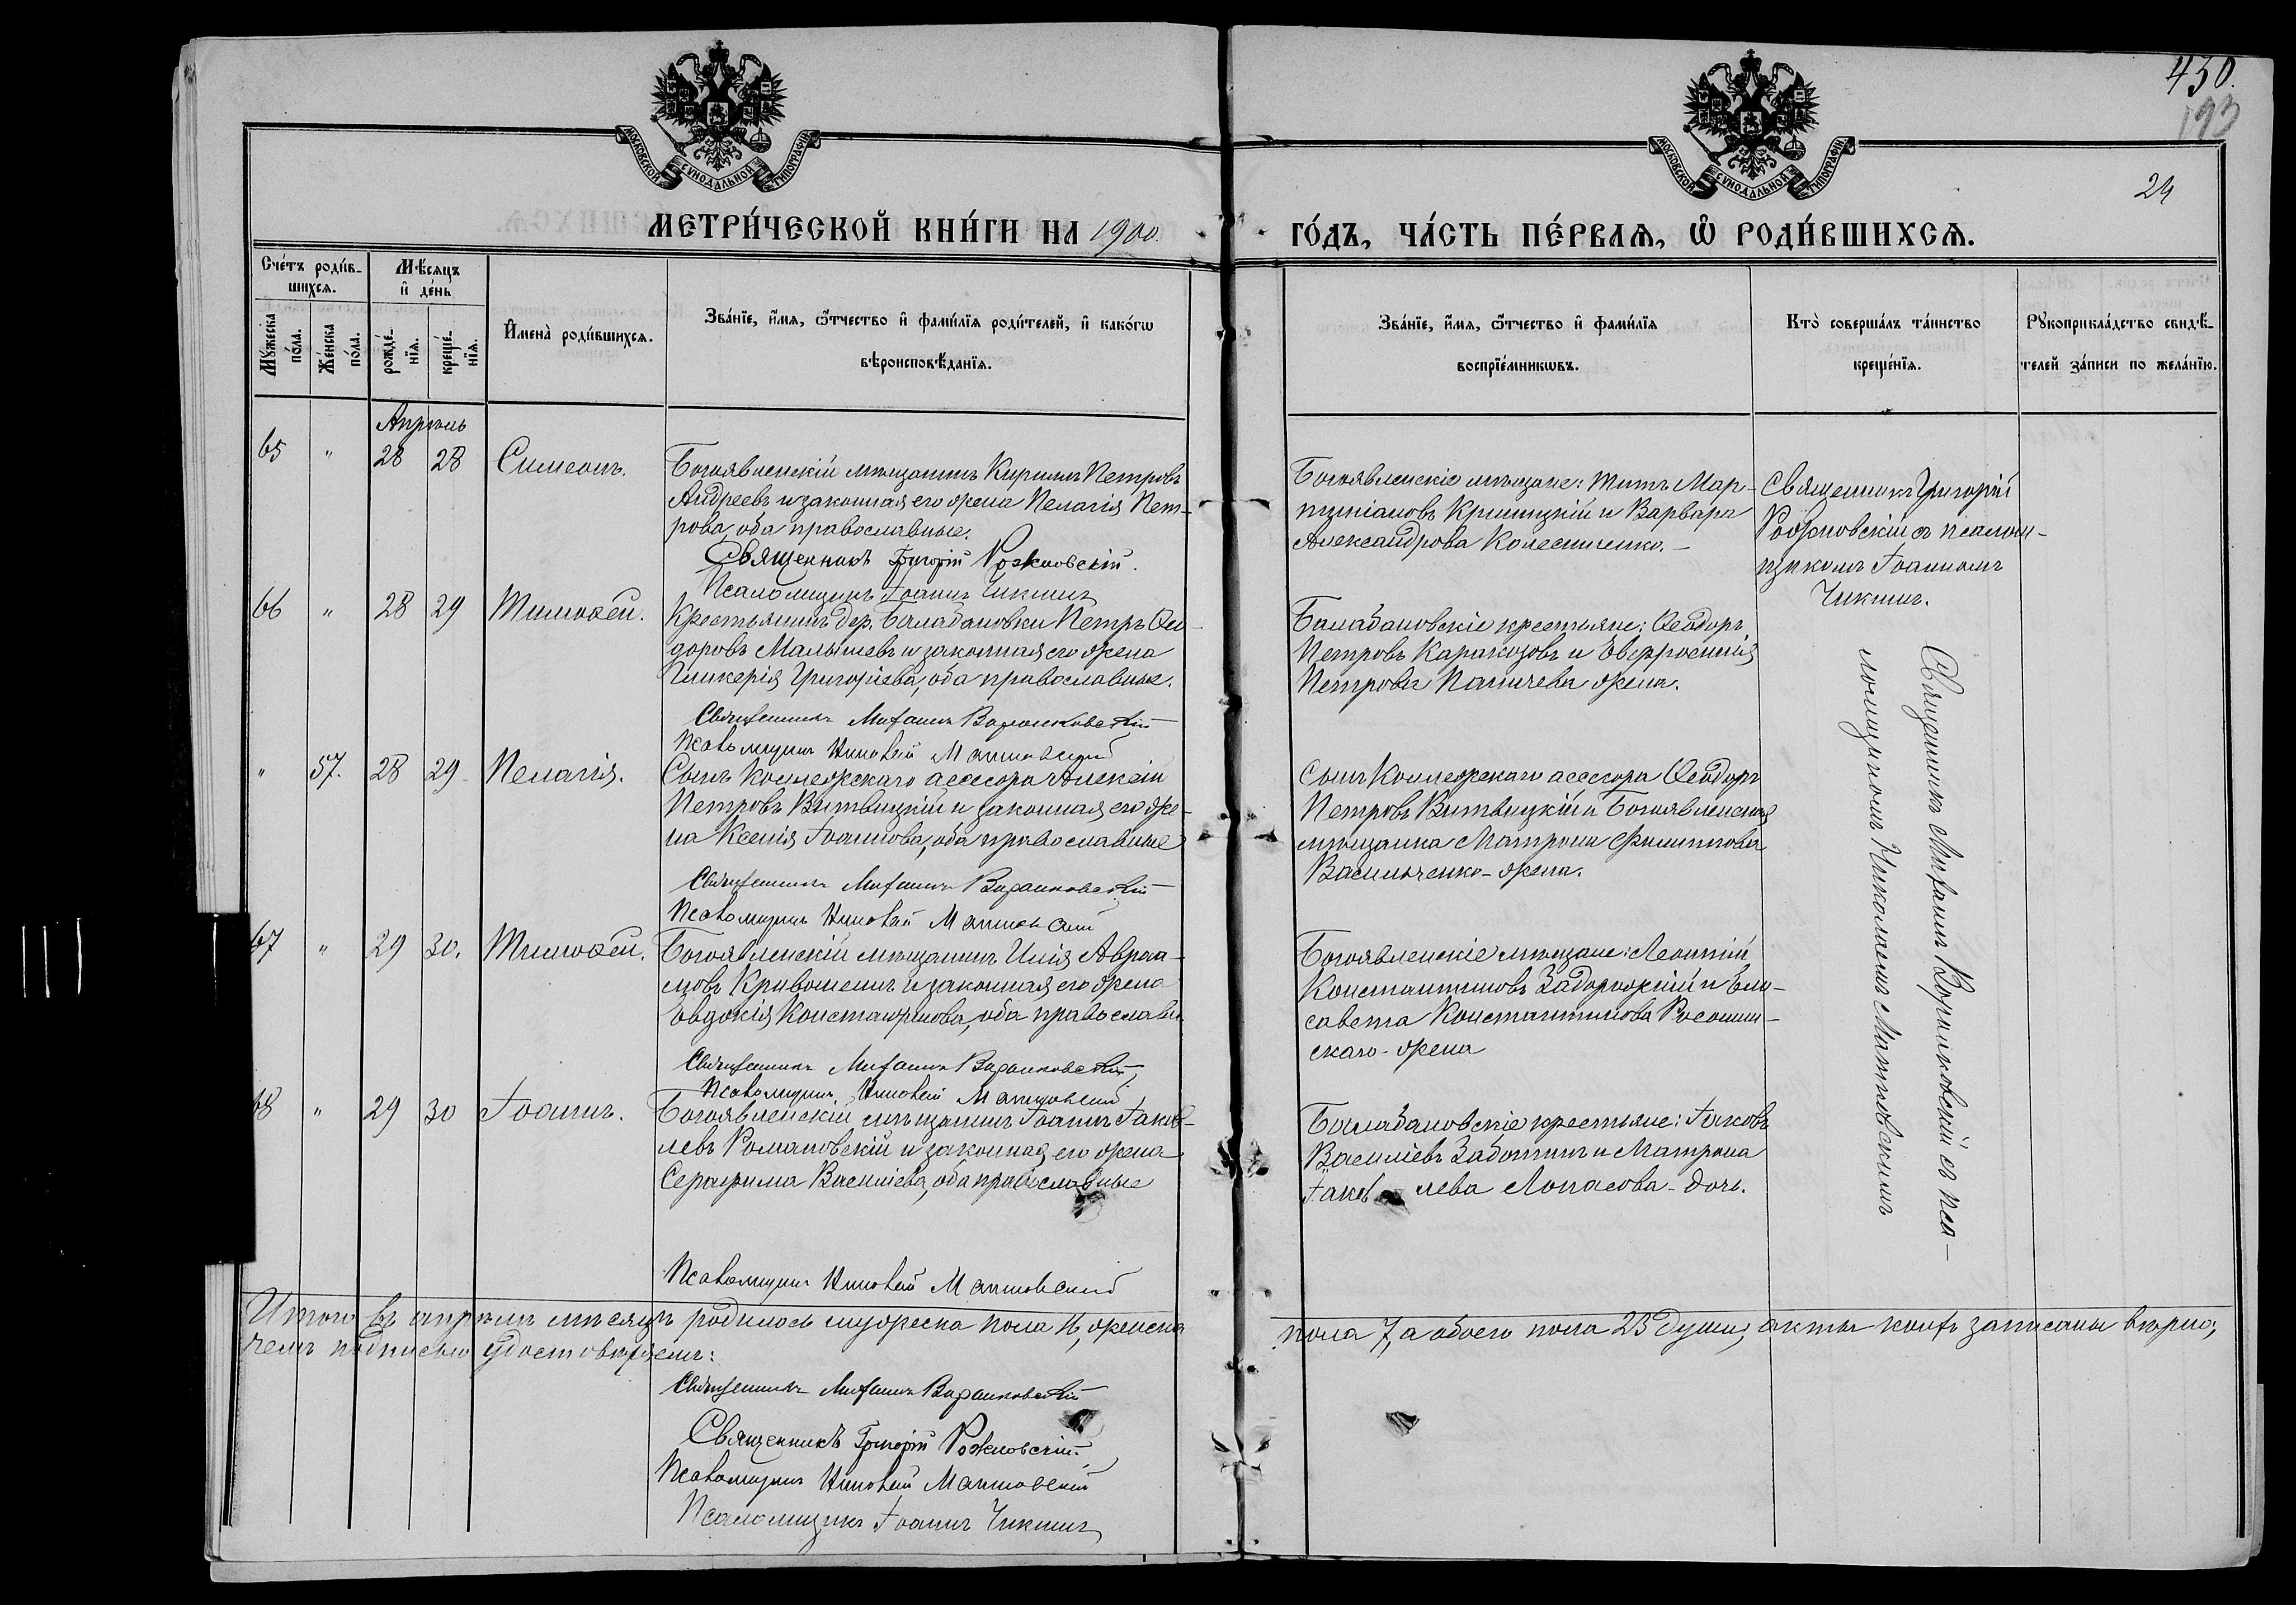 430.
193
24
МОСКОВСКОЙ СѴНОДАЛЬНОЙ ТИПОГРАФІИ
МОСКОВСКОЙ СѴНОДАЛЬНОЙ ТИПОГРАФІИ
МЕТРИ́ЧЕСКОЙ КНИ́ГИ НА 1900
ГО́ДЪ, ЧА́СТЬ ПЕ́РВАѦ, Ѿ РОДИ́ВШИХСѦ.
Сче́тъ роди́в-
шихсѧ.
Мѣ́сяцъ
и҆ де́нь
Мꙋ́жеска
по́ла.
Же́нска
по́ла.
рожде́-
нїѧ.
креще́-
нїѧ.
И҆мена̀ роди́вшихсѧ.
Зва́нїе, и҆́мѧ, ѻ҆́тчество и҆ фами́лїѧ роди́телей, и҆ како́гѡ
вѣроисповѣ́данїѧ.
Зва́нїе, и҆́мѧ, ѻ҆́тчество и҆ фами́лїѧ
воспрїе́мникѡвъ.
Кто̀ соверша́лъ та́инство
креще́нїѧ.
Рꙋкоприкла́дство свидѣ́-
телей за́писи по жела́нїю.
Апрѣль
65 " 28 28 Симеонъ.
Богоявленскій мѣщанинъ Кириллъ Петровъ
Андреевъ и законная его жена Пелагія Пет-
рова, оба православные.
Священникъ Григорій Рожковскій.
Псаломщикъ Іоаннъ Чикшилъ
Богоявленскіе мѣщане: Титъ Мар-
тиніановъ Криницкій и Варвара
Александрова Колесниченко.-
Священникъ Григорій
Рожковскій съ псалом-
щикомъ Іоанномъ
66 " 28 29 Тимоѳей.
Крестьянинъ дер. Балабановки Петръ Ѳео-
доровъ Малышевъ и законная его жена
Гликерія Григоріева, оба православные.
Священникъ Михаилъ Воронковскій
Псаломщикъ Николай
Балабановскіе крестьяне: Ѳеодоръ
Петровъ Каракозовъ и Евфросинія
Петрова Папичева жена.
" 57. 28 29 Пелагія.
Сынъ Коллежскаго ассесора Алексій
Петровъ Витвицкій и законная его же-
на Ксенія Іоаннова, оба православные
Священникъ Михаилъ Воронковскій
Псаломщикъ Николай
Сынъ Коллежскаго ассесора Ѳеодоръ
Петровъ Витвицкій и Богоявленская
мѣщанка Матрона Филиппова
Васильченко - жена.
67 " 29 30. Тимоѳей.
Богоявленскій мѣщанинъ Илія Авраа-
мовъ Кривошеинъ и законная его жена
Евдокія Константинова, оба православн
Священникъ Михаилъ Воронковскій
Псаломщикъ Николай
Богоявленскіе мѣщане: Леонтій
Константиновъ Задорожній и Ели-
савета Константинова Росошин-
скаго - жена
68 " 29 30 Іоаннъ.
Богоявленскій мѣщанинъ Іоаннъ Іаков-
левъ Романовскій и законная его жена
Серафима Василіева, оба православные
Псаломщикъ Николай
Балабановскіе крестьяне: Іаковъ
Василіевъ Заботинъ и Матрона
Іаковлева Лопасова - дочь.
Священникъ Михаилъ Воронковскій съ пса-
ломщикомъ Николаемъ
Итого въ апрѣлѣ мѣсяцѣ родилось мужеска пола 16, женска
пола 7, а обоего пола 23 души, акты коихъ записаны вѣрно,
чемъ подписью удостовѣряемъ:
Священникъ Михаилъ Воронковскій
Священникъ Григорій Рожковскій.
Псаломщикъ Николай
Псаломщикъ Іоаннъ